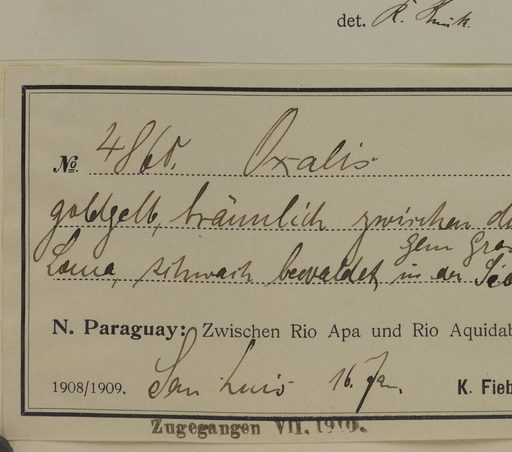 det. R.
No. 4860. Oxalis
goldgelb, bräunlich zwischen
gem Gras
Loma, schwach bewaldet, in der
N. Paraguay: Zwischen Rio Apa und Rio Aquidab
1908/1909. San Luis 16. Jan. K. Fieb
Zugegangen VII. 1910.